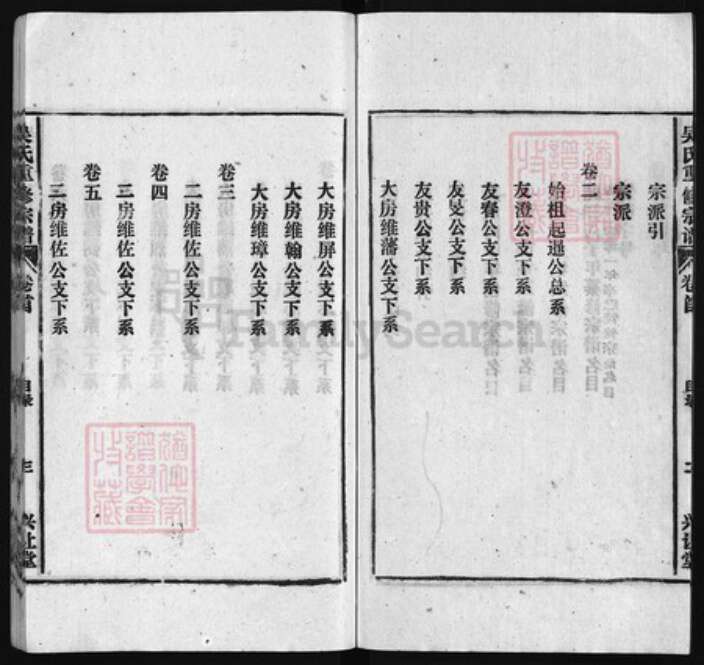 宗派引
宗派
卷二
始祖起遜公总系
友澄公支下系
友春公支下系
友旻公支下系
友贵公支下系
大房维藩公支下系
吴氏重修宗谱
卷首
目录
二
兴让堂
大房维屏公支下系
大房维翰公支下系
大房维璋公支下系
卷三
二房维佐公支下系
卷四
三房维佐公支下系
卷五
三房维佐公支下系
吴氏重修宗谱
卷首
目录
三
兴让堂
FamilySearch